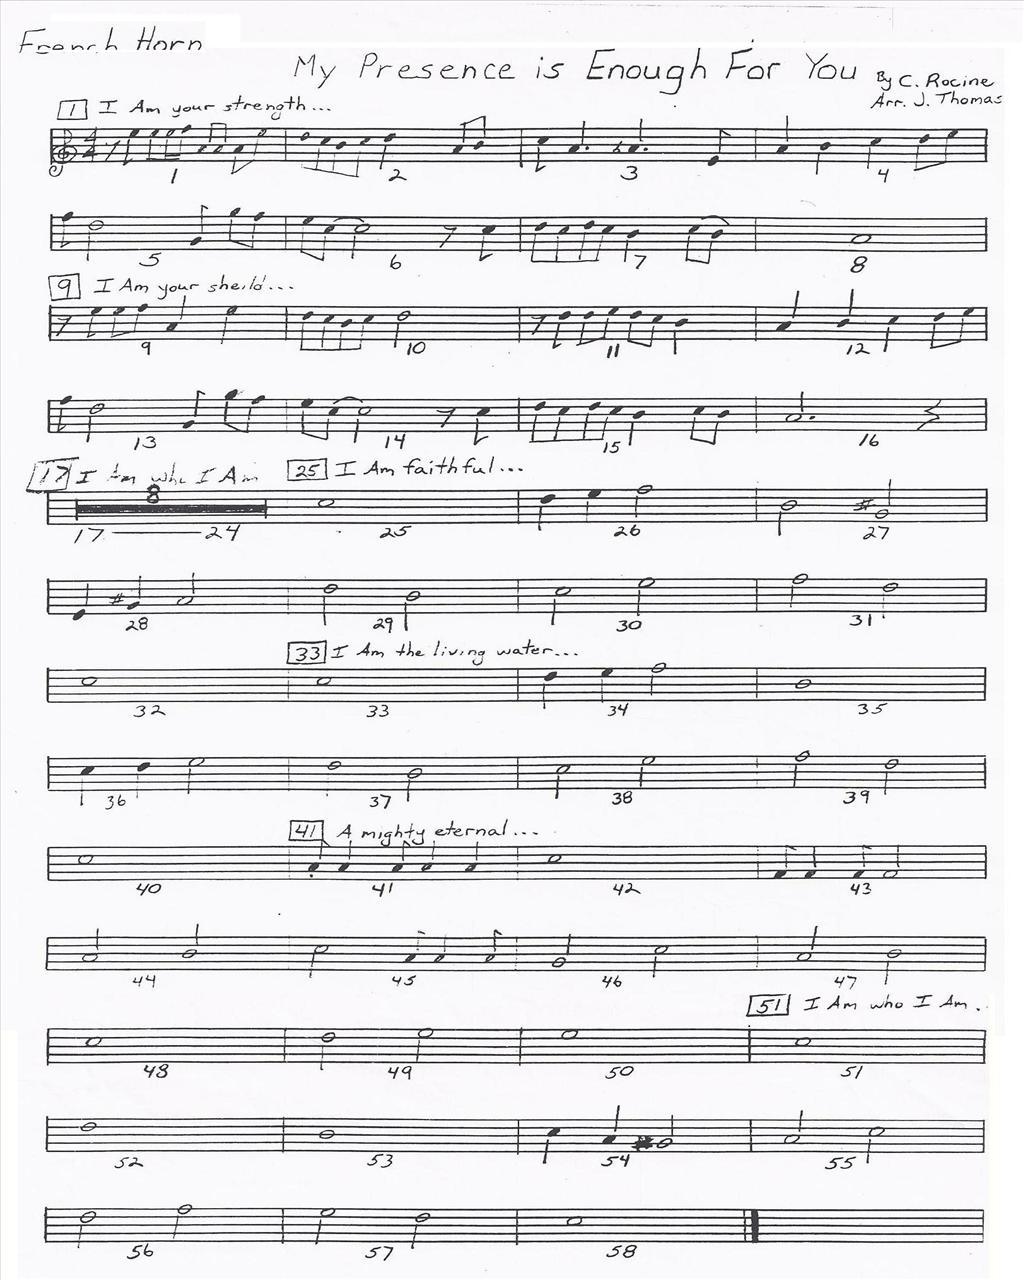 French Horn
My Presence is Enough For You
By C. Rocine
Arr. J. Thomas
1 I Am your strength...
1 2 3 4
5 6 7 8
9 I Am your sheild...
9 10 11 12
13 14 15 16
17 I Am who I Am 25 I Am faithful...
8
17 24 25 26 27
28 29 30 31
33 I Am the living water...
32 33 34 35
36 37 38 39
41 A mighty eternal...
40 41 42 43
44 45 46 47
51 I Am who I Am.
48 49 50 51
52 53 54 55
56 57 58